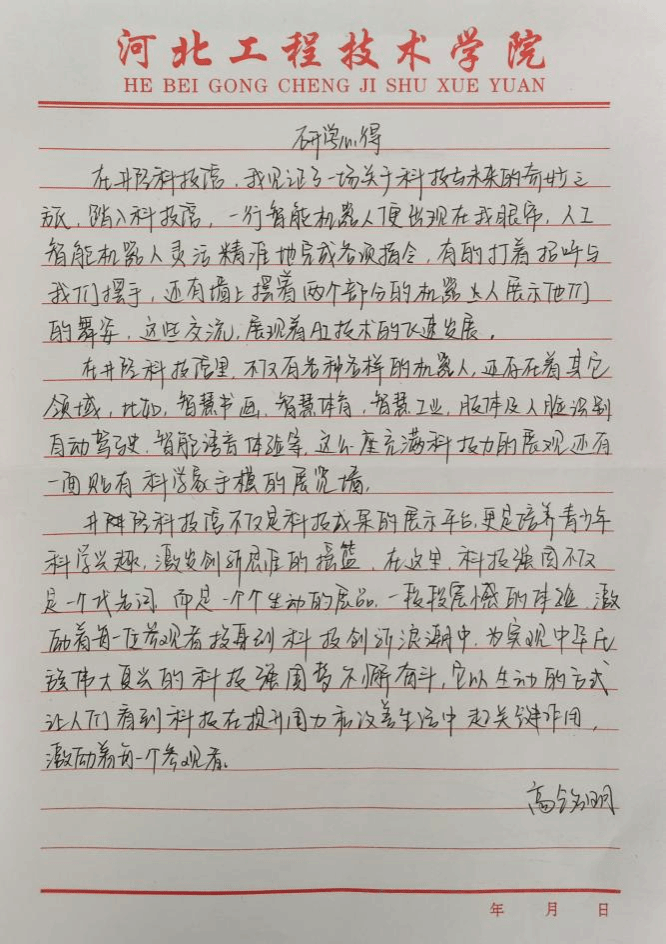 河北工程技术学院
HE BEI GONG CHENG JI SHU XUE YUAN
研学心得
在井陉科技馆，我见证了一场关于科技与未来的奇妙之
旅，踏入科技馆，一行智能机器人便出现在我眼帘，人工
智能机器人灵活精准地完成各项指令，有的打着招呼与
我们摆手，还有墙上摆着两个部分的机器人展示他们
的舞姿，这些交流，展现着AI技术的飞速发展。
在井陉科技馆里，不仅有各种各样的机器人，还存在着其它
领域，比如，智慧书画，智慧体育，智慧工业，肢体及人脸识别
自动驾驶，智能语音体验等，这么座充满科技力的展观还有
一面贴有科学家手模的展览墙。
井陉科技馆不仅是科技成果的展示平台，更是培养青少年
科学兴趣，激发创新思维的摇篮，在这里，科技强国不仅
是一个代名词，而是一个个生动的展品，一段段震憾的体验，激
励着每一位参观者投身到科技创新浪潮中，为实现中华民
族伟大复兴的科技强国梦不懈奋斗，它以生动的方式
让人们看到科技在提升国力和改善生活中起关键作用，
激励着每一个参观者。
高铭明
年 月 日